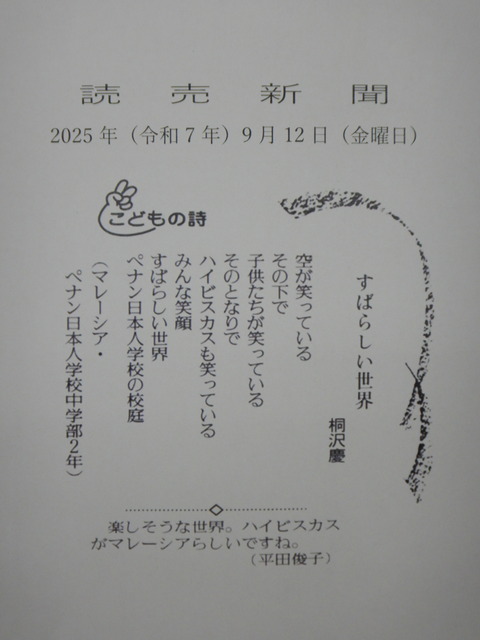 読売新聞
2025年（令和7年）9月12日（金曜日）
こどもの詩
すばらしい世界
桐沢慶
空が笑っている
その下で
子供たちが笑っている
そのとなりで
ハイビスカスも笑っている
みんな笑顔
すばらしい世界
ペナン日本人学校の校庭
（マレーシア・
ペナン日本人学校中学部2年）
楽しそうな世界。ハイビスカス
がマレーシアらしいですね。
（平田俊子）